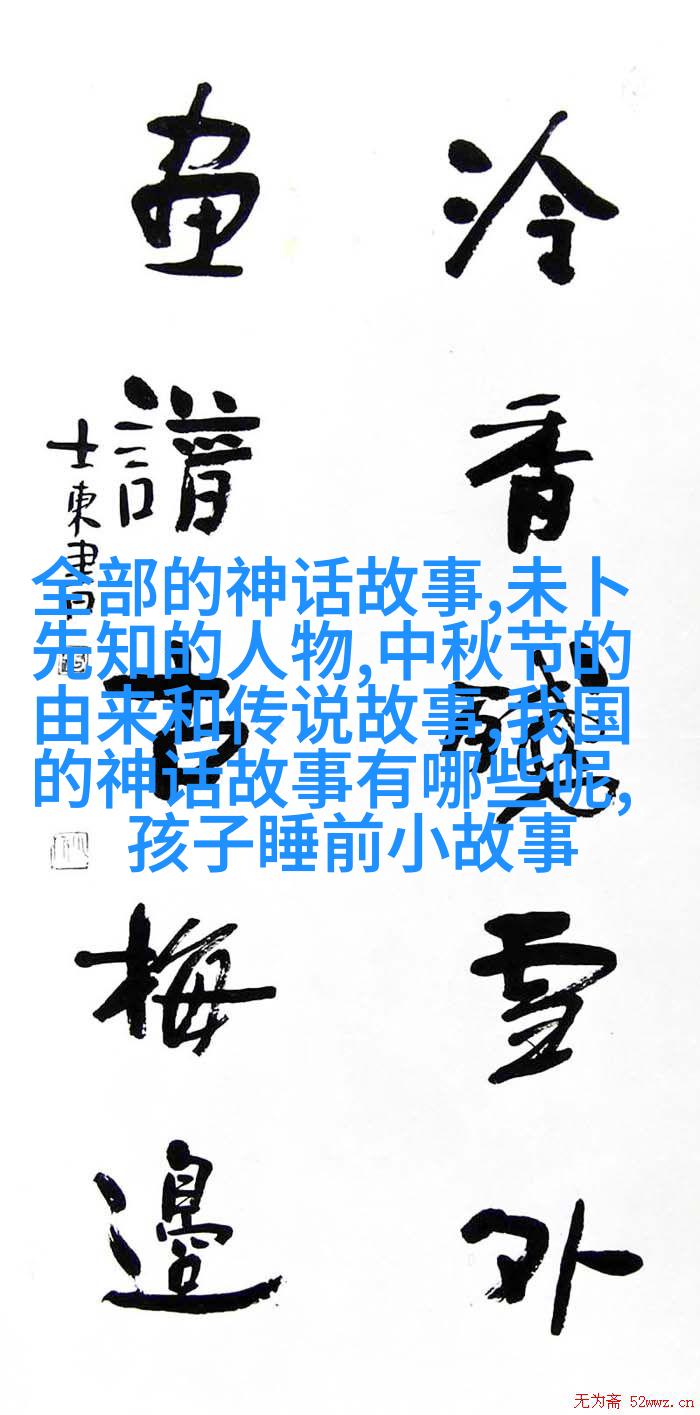 冷香殘雪外
畫譜古梅邊
士東書
全部的神话故事,未卜
先知的人物,中秋节的
由来和传说故事,我国
的神话故事有哪些呢,
孩子睡前小故事
无为斋 52wwz.cn